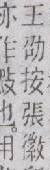 王劭按張徽
亦作毁也用